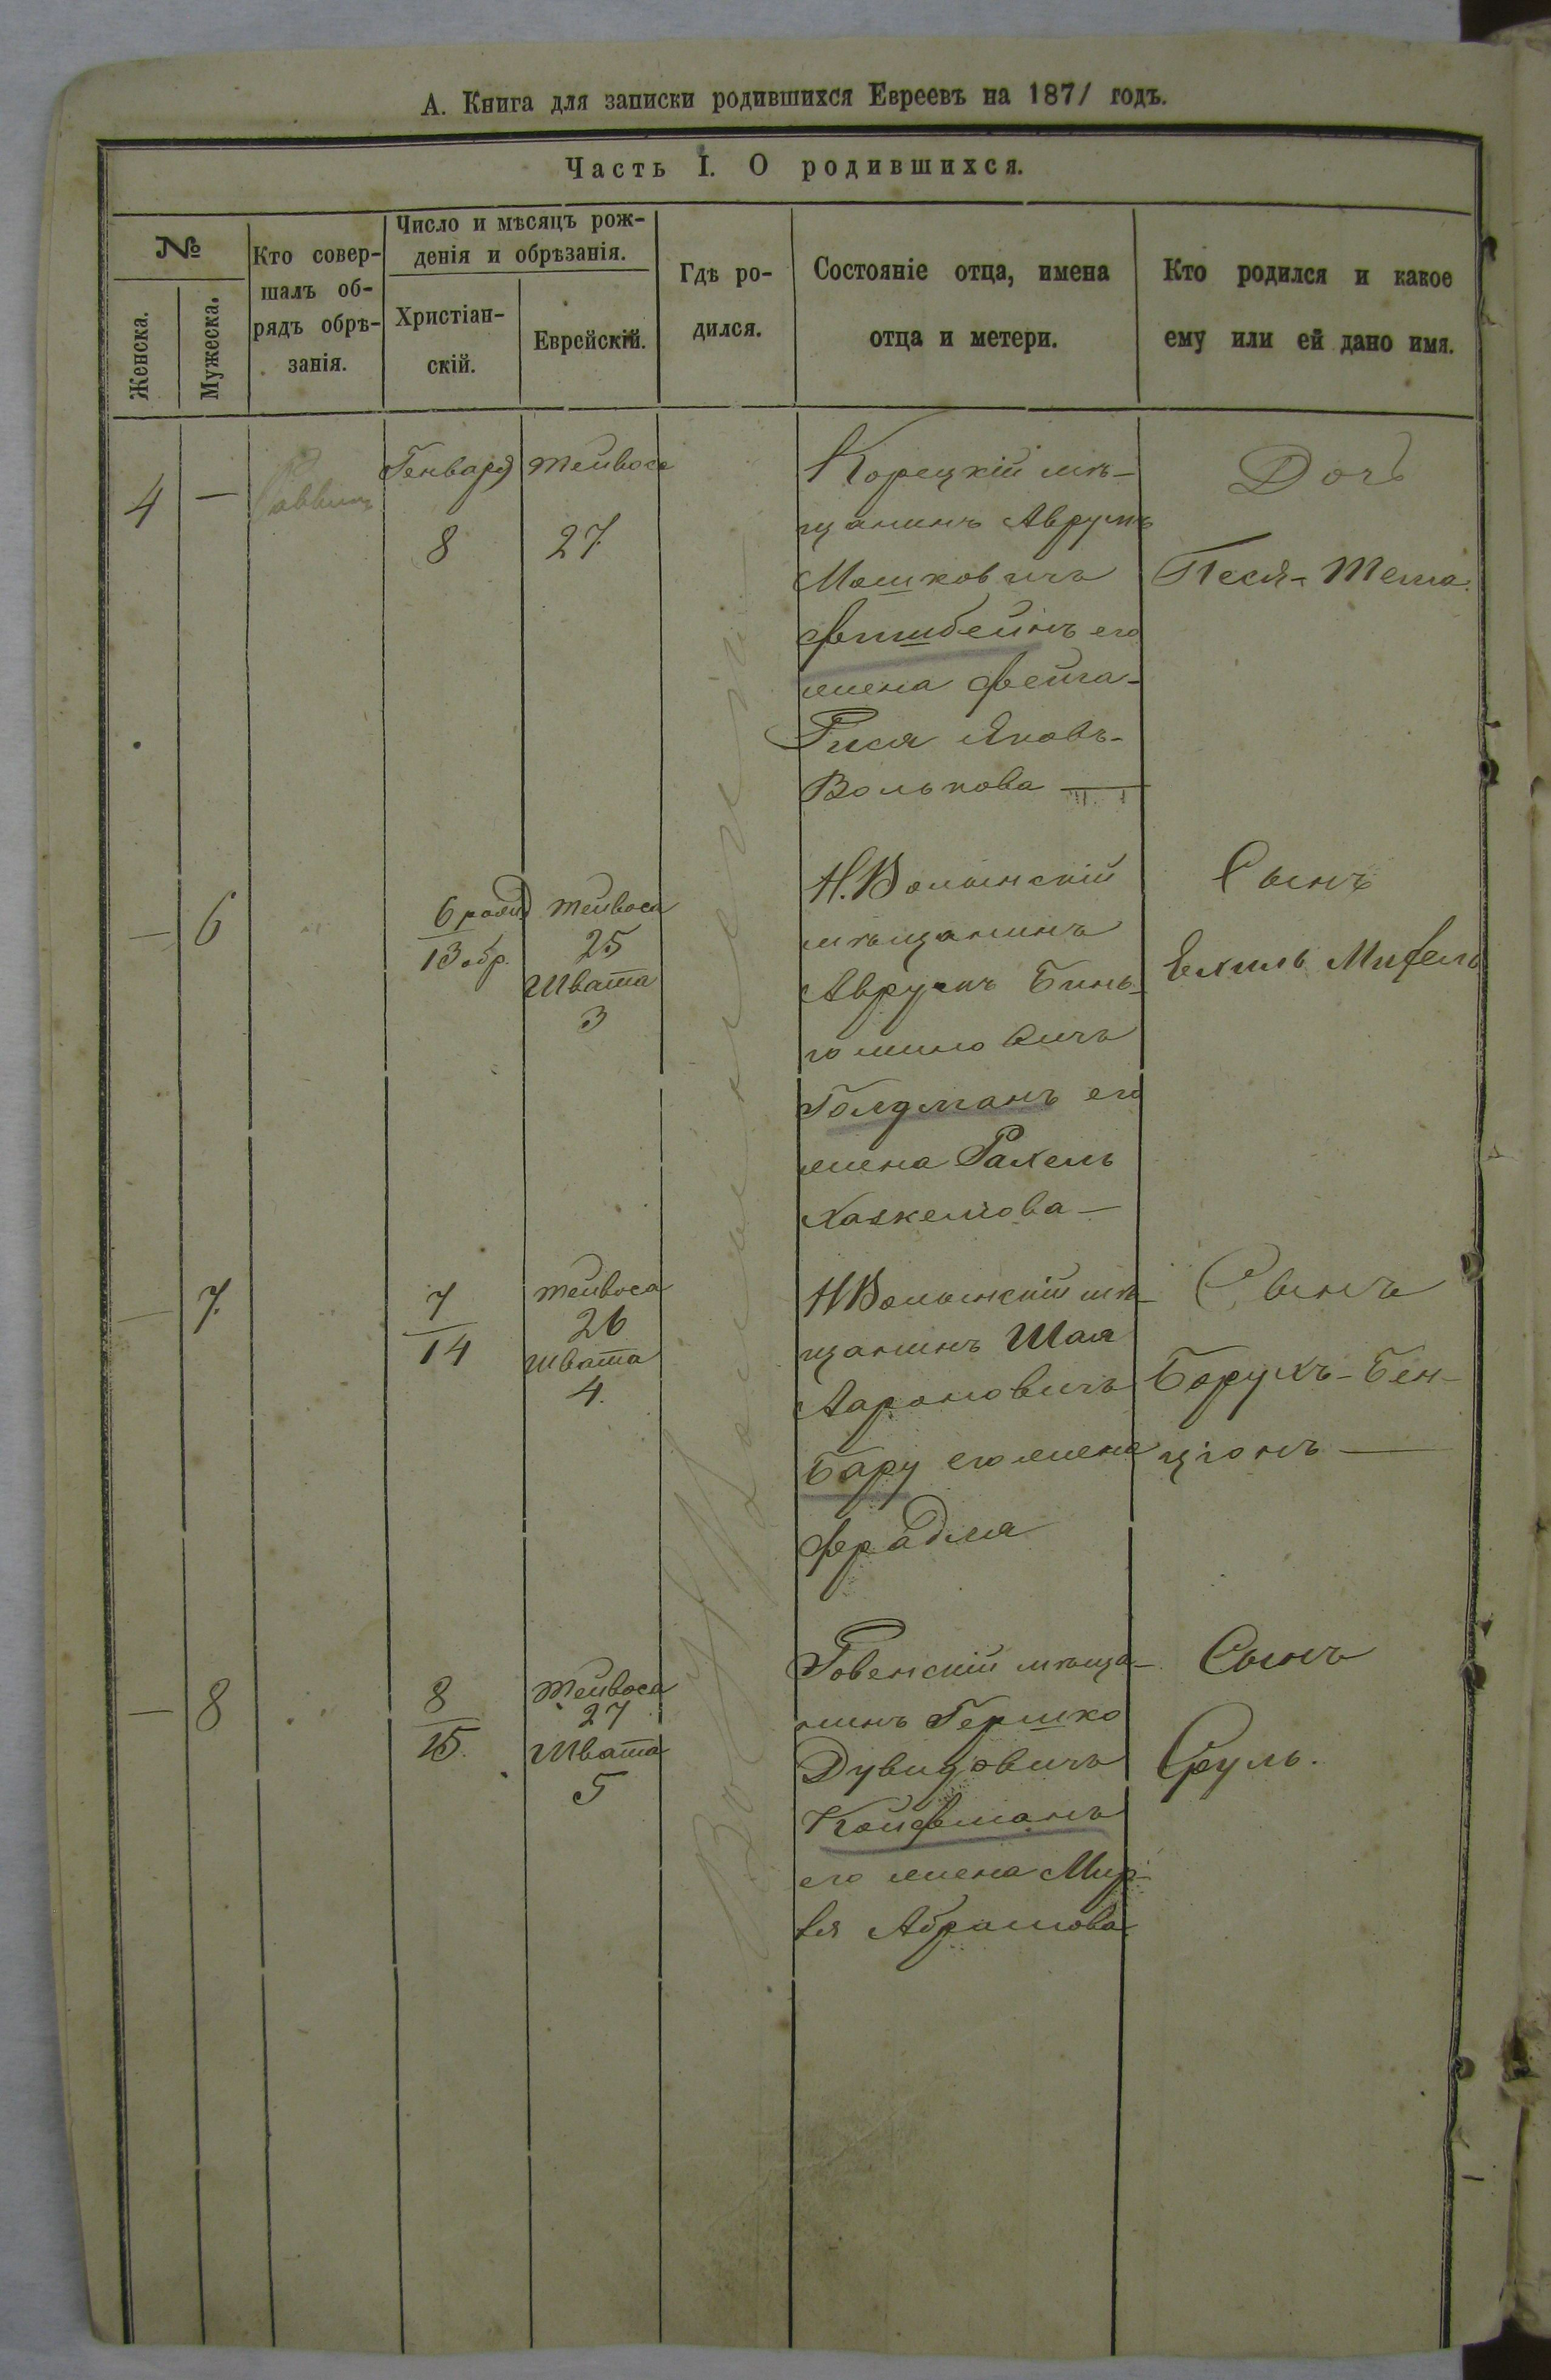 А. Книга для записки родившихся Евреевъ на 1871 годъ.
Часть I. О родившихся.
№
Женска.
Мужеска.
Кто совер-
шалъ об-
рядъ обрѣ-
занія.
Число и мѣсяцъ рож-
денія и обрѣзанія.
Христіан-
скій.
Еврейскій.
Гдѣ ро-
дился.
Состояніе отца, имена
отца и метери.
Кто родился и какое
ему или ей дано имя.
4 —
Раввинъ
Генваря
8
Тейвоса
27
Корецкій мѣ-
щанинъ Аврумъ
Мошковичъ
его
жена Фейга-
Рися Яковъ-
Волькова —
Дочь
Песя-
— 6
6 рожд
13 обр.
Тейвоса
25
Швата
3
Н.Волынскій
мѣщанинъ
Аврумъ Бинь-
юминовичъ
Голдманъ его
жена Рахель
Хаскелѣва —
Сынъ
Ехиль Михель
В мѣст.
— 7.
7
14
Тейвоса
26
Швата
4.
НВолынскій мѣ-
щанинъ Шая
Ароновичъ
Бару его жена
Фрадля
Сынъ
Борухъ-Бен-
ціонъ —
— 8
8
15.
Тейвоса
27
Швата
5
Ровенскій мѣща-
нинъ Гершко
Дувидовичъ
Койфманъ
его жена Мир-
ля Абрамова
Сынъ
Сруль.